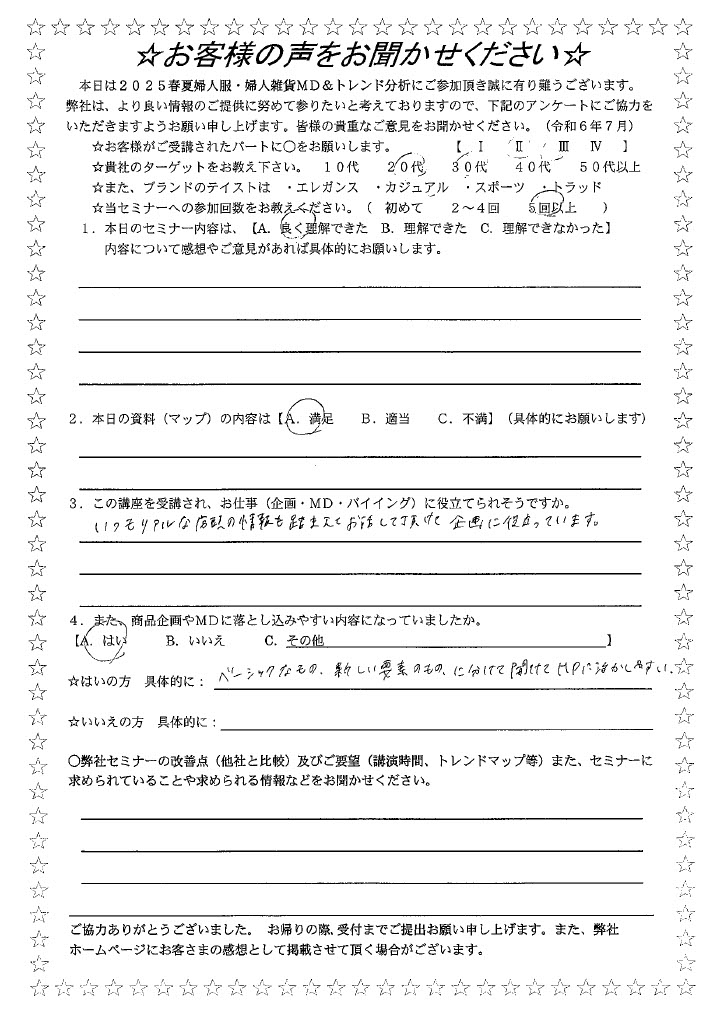 ☆お客様の声をお聞かせください☆
本日は2025春夏婦人服・婦人雑貨MD＆トレンド分析にご参加頂き誠に有り難うございます。
弊社は、より良い情報のご提供に努めて参りたいと考えておりますので、下記のアンケートにご協力を
いただきますようお願い申し上げます。皆様の貴重なご意見をお聞かせください。（令和6年7月）
☆お客様がご受講されたパートに〇をお願いします。 【 Ⅰ Ⅱ Ⅲ Ⅳ 】
☆貴社のターゲットをお教え下さい。 10代 20代 30代 40代 50代以上
☆また、ブランドのテイストは ・エレガンス ・カジュアル ・スポーツ ・トラッド
☆当セミナーへの参加回数をお教えください。（ 初めて 2～4回 5回以上 ）
1．本日のセミナー内容は、【A. 良く理解できた B. 理解できた C. 理解できなかった】
内容について感想やご意見があれば具体的にお願いします。
2．本日の資料（マップ）の内容は【A．満足 B．適当 C．不満】（具体的にお願いします）
3．この講座を受講され、お仕事（企画・MD・バイイング）に役立てられそうですか。
いつもリアルな店頭の情報も踏まえてお話して頂けて 企画に役立っています。
4．また、商品企画やMDに落とし込みやすい内容になっていましたか。
【A．はい B．いいえ C．その他 】
☆はいの方 具体的に： ベーシックなもの、新しい要素のもの、に分けて聞けて MDに活かしやすい。
☆いいえの方 具体的に：
〇弊社セミナーの改善点（他社と比較）及びご要望（講演時間、トレンドマップ等）また、セミナーに
求められていることや求められる情報などをお聞かせください。
ご協力ありがとうございました。 お帰りの際、受付までご提出お願い申し上げます。また、弊社
ホームページにお客さまの感想として掲載させて頂く場合がございます。